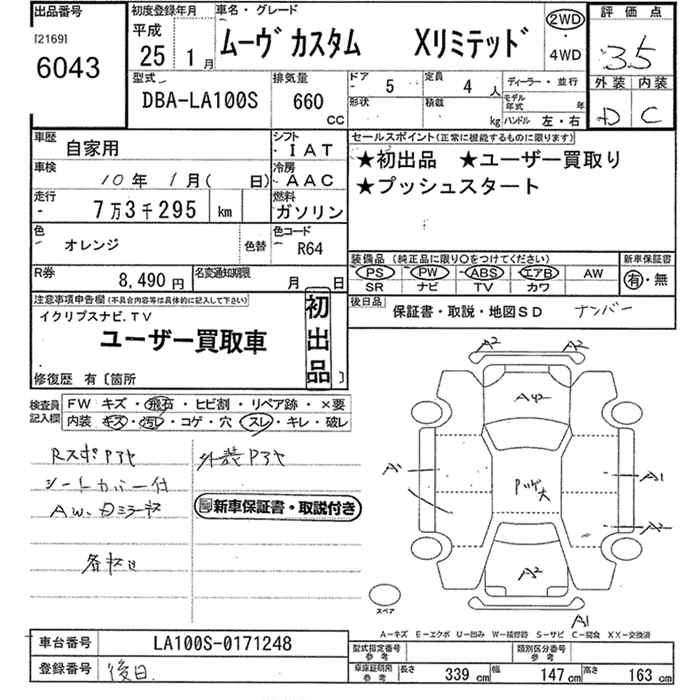 出品番号 初度登録年月 車名・グレード 評価点
[2169] 平成 2WD
6043 25 1月 ムーヴ カスタム Xリミテッド ・ 3.5
4WD
型式 排気量 ドア 5 定員 4人 ディーラー・並行 外装 内装
DBA-LA100S 660 CC 形状 積載 kg モデル年式 年 D C
ハンドル 左・右
車歴 自家用 シフト ・IAT セールスポイント(正常に機能するものに限ります)
車検 10年 1月( 日) 冷房 ・AAC ★初出品 ★ユーザー買取り
走行 7万3千295 km 燃料 ガソリン ★プッシュスタート
色 オレンジ 色替 色コード R64
装備品 (純正品に限り〇をつけてください) 新車保証書
R券 8,490円 名変通知期限 月 日 PS PW ABS エアB AW 有・無
SR ナビ TV カワ
注意事項申告欄(不具合内容等は具体的に記入して下さい) 初出品 後日品 保証書・取説・地図SD ナンバー
イクリプスナビ.TV
ユーザー買取車
修復歴 有〔箇所 〕
A2 A2
検査員 FW キズ・飛石・ヒビ割・リペア跡・×要
記入欄 内装 キズ・汚レ・コゲ・穴・スレ・キレ・破レ
シートカバー付
A1 A1
新車保証書・取説付き
A2
A2
スペア
A1
A−キズ E−エクボ U−凹み W−補修跡 S−サビ C−腐食 XX−交換済
車台番号 LA100S-0171248 型式指定番号 参考 類別区分番号 参考
登録番号 後日. 車庫証明用 参考 長さ 339cm 幅 147cm 高さ 163cm